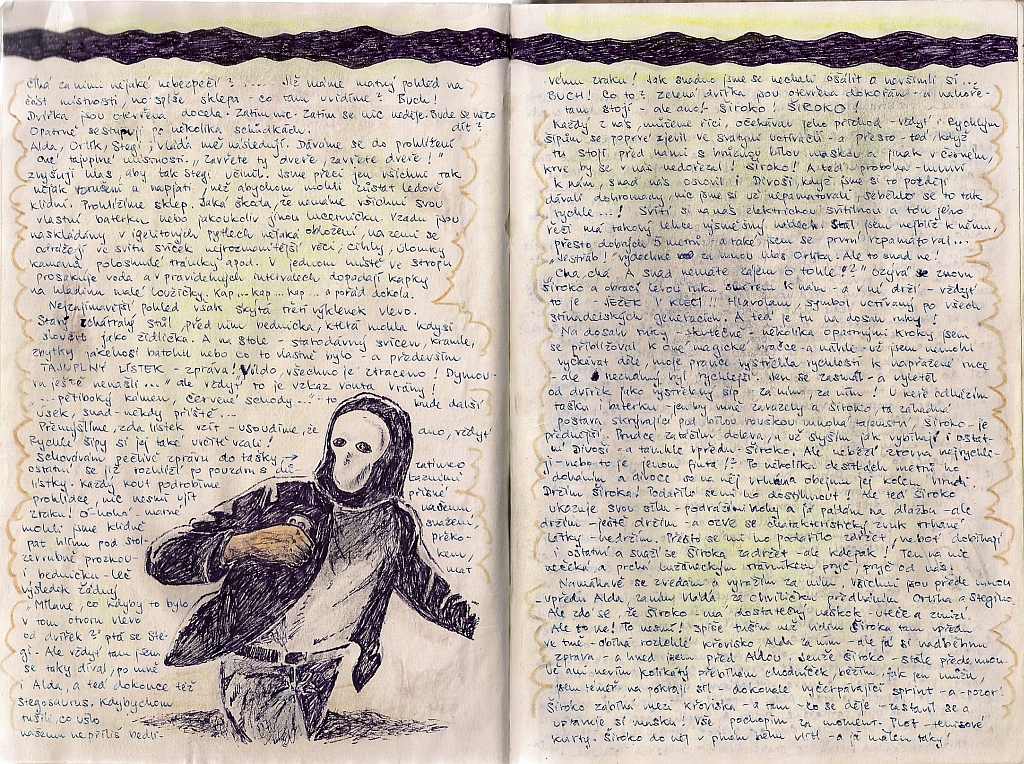 číhá za nimi nějaké nebezpečí? .... Již máme matný pohled na
část místnosti, no spíše sklepa - co tam uvidíme? Buch!
Dvířka jsou otevřena docela. Zatím nic. Zatím se nic neděje. Bude se něco
dít?
Opatrně sestupuji po několika schůdkách.
Alda, Orlík, Stegi i Vláďa mě následují. Dáváme se do prohlížení
oné tajuplné místnosti. „Zavřete ty dveře, zavřete dveře!"
zvyšuji hlas, aby tak Stegi učinil. Jsme přeci jen všichni tak
nějak vzrušeni a napjatí, než abychom mohli zůstat ledově
klidní. Prohlížíme sklep. Jaká škoda, že nemáme všichni svou
vlastní baterku nebo jakoukoliv jinou lucerničku. Vzadu jsou
naskládány v igelitových pytlech nějaká obložení, na zemi se
odrážejí ve svitu svíček nejroztodivnější věci; cihly, úlomky
kamená polosmulé trámky apod. V jednom místě ve stropu
prosakuje voda a v pravidelných intervalech dopadají kapky
na hladinu malé loužičky. Kap... kap... kap... a pořád dokola.
Nejzajímavější pohled však skýtá třetí výklenek vlevo.
Starý zchátralý stůl, před ním bednička, která mohla kdysi
sloužit jako židlička. A na stole - starodávný svícen, kramle,
zbytky jakéhosi batohu nebo co to vlastně bylo - a především
TAJUPLNÝ LÍSTEK - zpráva! „Vildo, všechno je ztraceno! Dýmov-
ra ještě nenašli..." ale vždyť to je vzkaz Vonta Vrány!
...pětiboký kámen, červené schody..." - to bude další
úsek, snad někdy příště...
Přemýšlíme, zda lístek vzít - usoudíme, že ano, vždyť
Rychlé šípy si jej také určitě vzali!
Schovávám pečlivě zprávu do tašky, zatímco
ostatní se již rozhlíží po pouzdru s dů-
lístky. Každý kout podrobíme přísné
prohlídce, nic nesmí ujít našemu
zraku! O-hohá - marné snažení
mohli jsme klidně překo-
pat hlínu pod stol- kem,
zevrubně prozkou- mat
i bedničku - leč
výsledek žádný
„Milane, co kdyby to bylo
v tom otvoru vlevo
od dvířek?" ptá se Ste-
gi. - Ale vždyť tam jsem
se taky díval, po mně
i Alda, a teď dokonce též
Stegosaurus. Kdybychom
tušili, co ušlo
našemu nepříliš bedli-
vému zraku! Jak snadno jsme se nechali ošálit a nevšimli si...
BUCH! Co to? Zelená dvířka jsou otevřena dokořán - a nahoře -
tam stojí - ale ano! Široko! ŠIROKO!
Každý z nás, můžeme říci, očekával jeho příchod - vždyť i Rychlým
šípům se poprvé zjevil ve Svatyni uctívačů - a přesto - teď když
tu stojí před námi s hrůznou bílou maskou a jinak v černém,
krve by se v nás nedořezal! Široko! A teď - proboha mluví
k nám, snad nás oslovil i Divoši, když jsme si to později
dávali dohromady, nic jsme si už nepamatovali, seběhlo se to tak
rychle...! Svítí si na nás elektrickou svítilnou a tón jeho
řeči má takový lehce výsměšný nádech. Stál jsem nejblíž k němu,
přesto dobrých 5 metrů - a také jsem se první vzpamatoval...
„Jestřáb!" vydechne za mnou hlas Orlíka. Ale to snad ne!
„Cha chá. A snad nemáte zájem o tohle!?" ozývá se znovu
Široko a obrací levou ruku směrem k nám - a v ní drží - vždyť
to je - JEŽEK V KLECI!! Hlavolam, symbol uctívaný po všech
stínadelských generacích. A teď je tu na dosah ruky!
Na dosah ruky - skutečně - několika opatrnými kroky jsem
se přibližoval k oné magické hračce - a náhle - už jsem nemohl
vyčkávat déle, moje pravice vystřelila rychlostí k napřažené ruce
- ale neznámý byl rychlejší. Jen se zasmál - a vyletěl
od dvířek jako vystřelený šíp. Za ním, za ním! U keře odházím
tašku i baterku - jen by mně zavazely a Široko, ta záhadná
postava skrývající pod bílou rouškou mnohá tajemství. Široko - je
přednější. Prudce zatáčím doleva, a už slyším jak vybíhají i ostat-
ní Divoši - a támhle vpředu - Široko. Ale neběží zrovna nejrychle-
ji - nebo to je jenom finta!? Po několika desítkách metrů ho
doháním a divoce se na něj vrhám a objímám jej kolem hrudi.
Držím Široka! Podařilo se mi ho dostihnout! Ale teď Široko
ukazuje svou sílu - podráží mi nohy a já padám na dlažbu - ale
držím - ještě držím - a ozve se charakteristický zvuk trhané
látky - nedržím. Přesto se mi ho podařilo zdržet, neboť dobíhají
i ostatní a snaží se Široka zadržet - ale kdepak! Ten na nic
nečeká a prchá Lužáneckým trávníkem pryč, pryč od nás!
Namáhavě se zvedám a vyrážím za ním, všichni jsou přede mnou
- vpředu Alda, za ním Vláďa. Za chviličku předbíhám Orlíka a Stegiho.
Ale zdá se, že Široko má dostatečný náskok - uteče a zmizí.
Ale to ne! To nesmí! Spíše tuším než vidím Široka tam vpředu
ve tmě - obíhá rozlehlé křovisko Alda za ním - ale já si nadběhnu
zprava - a hned jsem před Aldou. Jenže Široko - stále přede mnou
ve ani nevím kolikátý přebíhám chodníček, běžím, jak jen můžu
jsem téměř na pokraji sil - dokonale vyčerpávající sprint - a - pozor!
Široko zabíhá mezi křoviska - a tam - co se děje - zastavil se a
upravuje si masku! Vše pochopím za moment. Plot - tenisové
kurty. Široko do něj v plném běhu vlítl - a já málem taky!